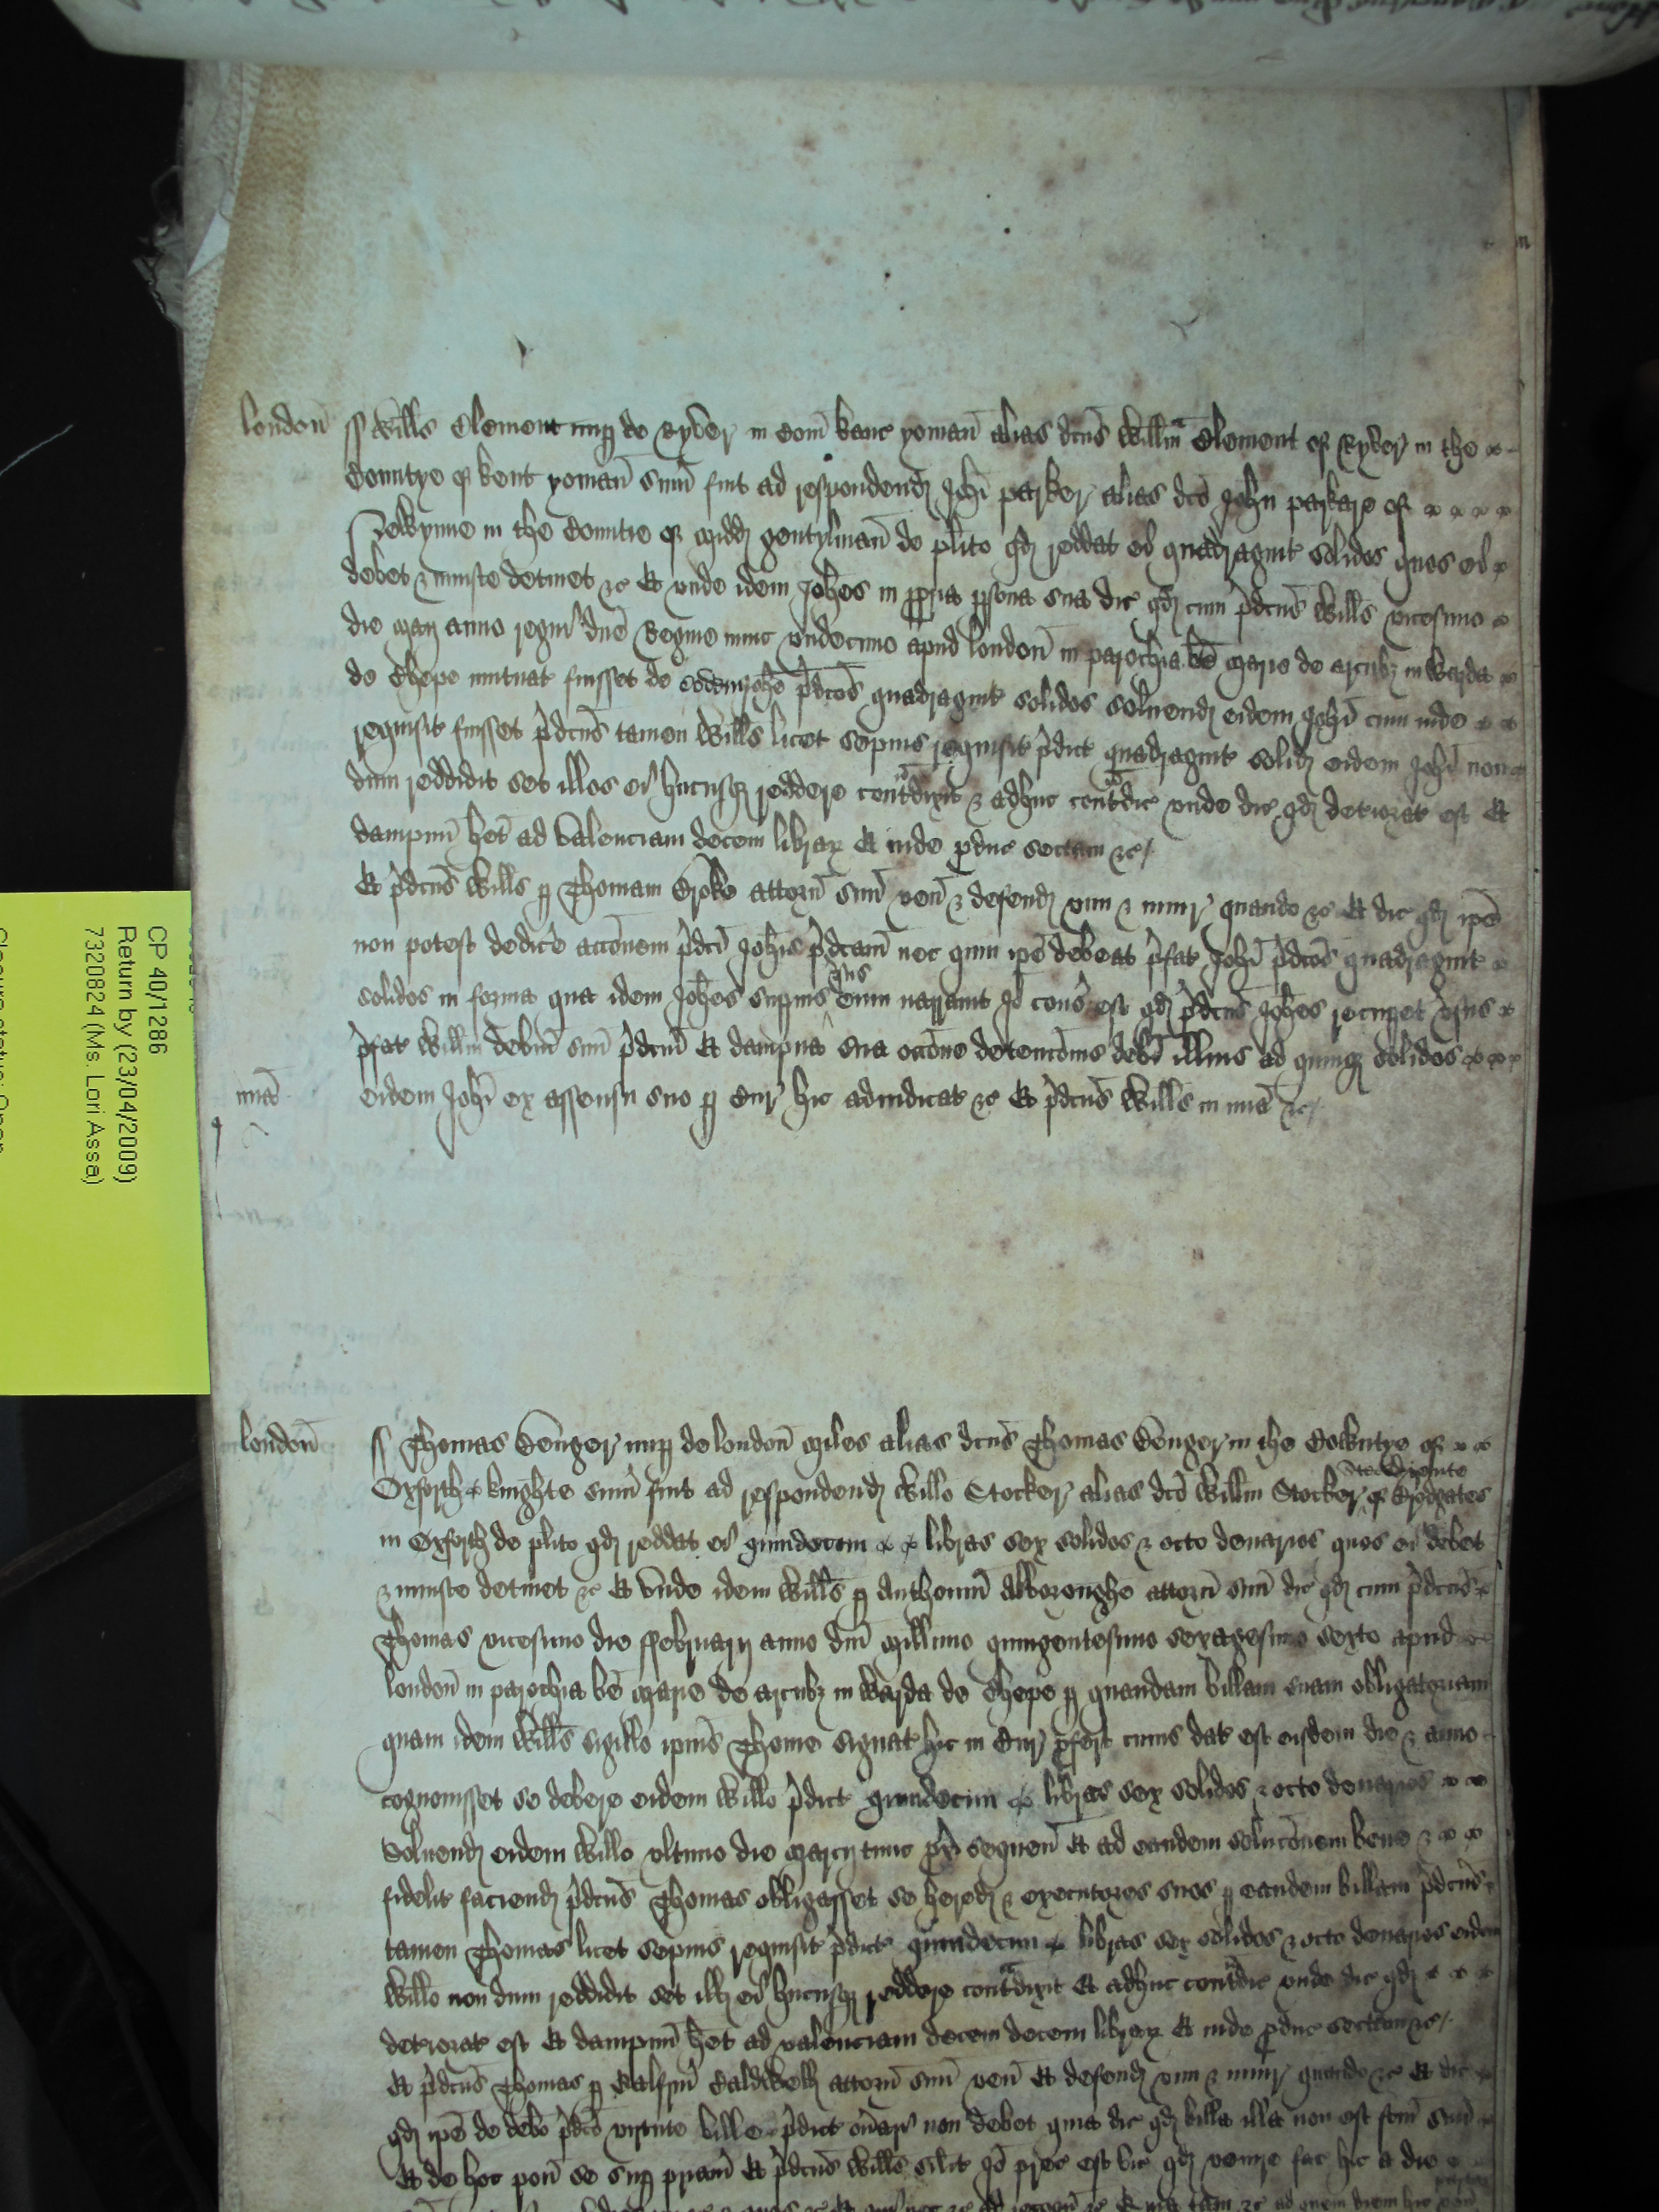 london ss Wills Clement nup de Ryver in Com kanc yoman alias dcus Willm Clement of Ryver in the
Countye of kent yoman sum fuit ad respondend Johi parker alias dco John parkare of
in the Countie of Midd gentylman de plito qd reddat ei quadragint solidos quos ei
debet & iniuste detinet &c Et unde idem Johes in ppria psona sua dic qd cum pdcus Wills vicesimo
die Maij anno regni dne Regine nunc undecimo apud london in parochia be Marie de arcubz in Warda
de Chepe mutuat fuisset de eodem Johe pdcos quadragint solidos solvend eidem Johi cum inde
requisit fuisset pdcus tamen Wills licet sepius requisit pdict quadragint solid eidem Johi non
dum reddidit set illos ei hucusqz reddere contradixit & adhuc contradic unde dic qd deteriorat est Et
dampnu het ad valenciam decem librar Et inde pduc sectam &c
Et pdcus Wills p Thomam Croke attorn suu ven & defend vim & iniur quando &c Et dic qd ipe
non potest dedicere accionem pdci Johis pdcam nec quin ipe debeat pfat Johi pdcos quadragint
solidos in forma qua idem Johes supius vsus eum narravit Io cons est qd pdcus Johes recupet vsus
pfat Willm debitu suu pdcm Et dampna sua occone detenconis debi illius ad quinqz solidos
mia eidem Johi ex assensu suo p Cur hic adiudicat &c Et pdcus Wills in mia &c
london ss Thomas Benger nup de london Miles alias dcus Thomas Benger in the Cowntye of
Oxforth knighte sum fuit ad respondend Willo Stocker alias dco Willm Stocker of
in Oxforth de plito qd reddat ei quindecim libras sex solidos & octo denarios quos ei debet
& iniuste detinet &c Et unde idem Wills p Anthoniu Alboroughe attorn suu dic qd cum pdcus
Thomas vicesimo die ffebruarij anno dni Millimo quingentesimo sexagesimo sexto apud
london in parochia be Marie de arcubz in Warda de Chepe p quandam billam suam obligatoriam
quam idem Wills sigillo ipius Thome signat hic in Cur pfert cuius dat est eisdem die & anno
cognovisset se debere eidem Willo pdict quindecim libras sex solidos & octo denarios
Solvend eidem Willo ultimo die Marcij tunc px sequen Et ad eandem soluconem bene &
fidelit faciend pdcus Thomas obligasset se hered & executores suos p eandem billam pdcus
tamen Thomas licet sepius requisit pdict quindecim libras sex solidos & octo denarios eidem
Willo non dum reddidit set ill ei hucusqz reddere contradixit Et adhuc contradic unde dic qd
deteriorat est Et dampnu het ad valenciam decem decem librar Et inde pduc sectam &c
Et pdcus Thomas p Caldwell attorn suu ven Et defend vim & iniur quando &c Et dic
qd ipe de debo pdco virtute bille pdict onari non debet quia dic qd billa illa non est fcm suu
Et de hoc pon se sup priam Et pdcus Wills silit Io prec est vic qd venire fac hic a die
CP 40/1286
Return by (23/04/2009)
7320824 (Ms. Lori Assa)